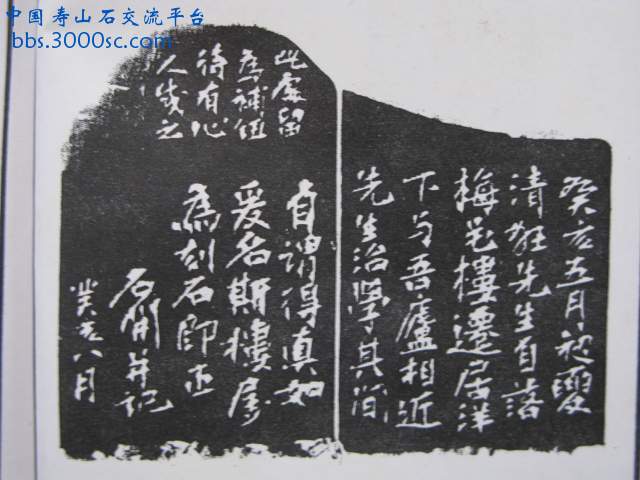 中国寿山石交流平台
bbs.3000sc.com
癸亥五月
清狂先生自落
梅花樓遷居洋
下与吾廬相近
先生治學其間
自謂得真如
爰名斯樓屬
爲刻石即正
石開并記
癸亥八月
此處留
爲補
待有心
人成之